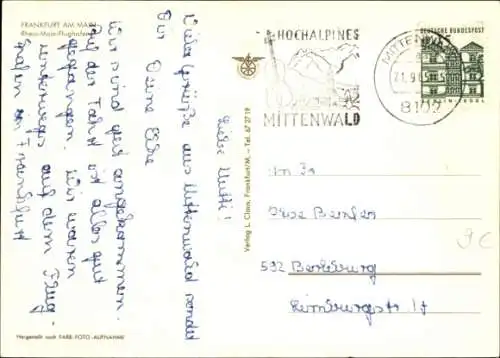 FRANKFURT AM MAIN
Rhein-Main-Flughafen
Liebe Mutti!
Viele Grüße aus Mittenwald sendet
Dir Deine Elke
Wir sind gut angekommen.
Auf der Fahrt ist alles gut
gegangen. Wir waren
unterwegs auf dem Flug-
hafen in Frankfurt
Hergestellt nach FARB-FOTO-AUFNAHME
Verlag L. Clam, Frankfurt/M. – Tel. 67 27 19
HOCHALPINES
MITTENWALD
MITTENWALD
8102
DEUTSCHE BUNDESPOST
592 Berleburg
Limburgstr. 17
9C